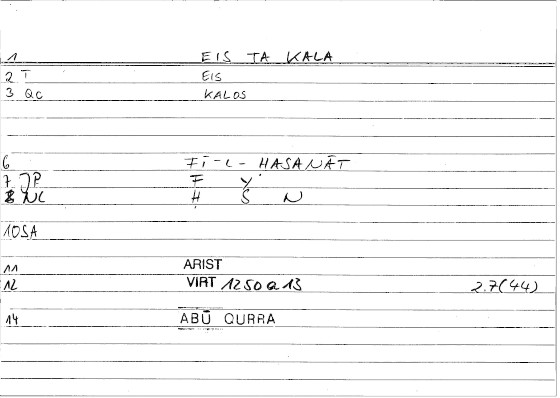 1 EIS TA KALA
2 T EIS
3 QC KALOS
6 FĪ-L-HASANĀT
7 JP F Y
8 NC H S N
10SA
11 ARIST
12 VIRT 1250 a 13 2.7(44)
14 ABŪ QURRA